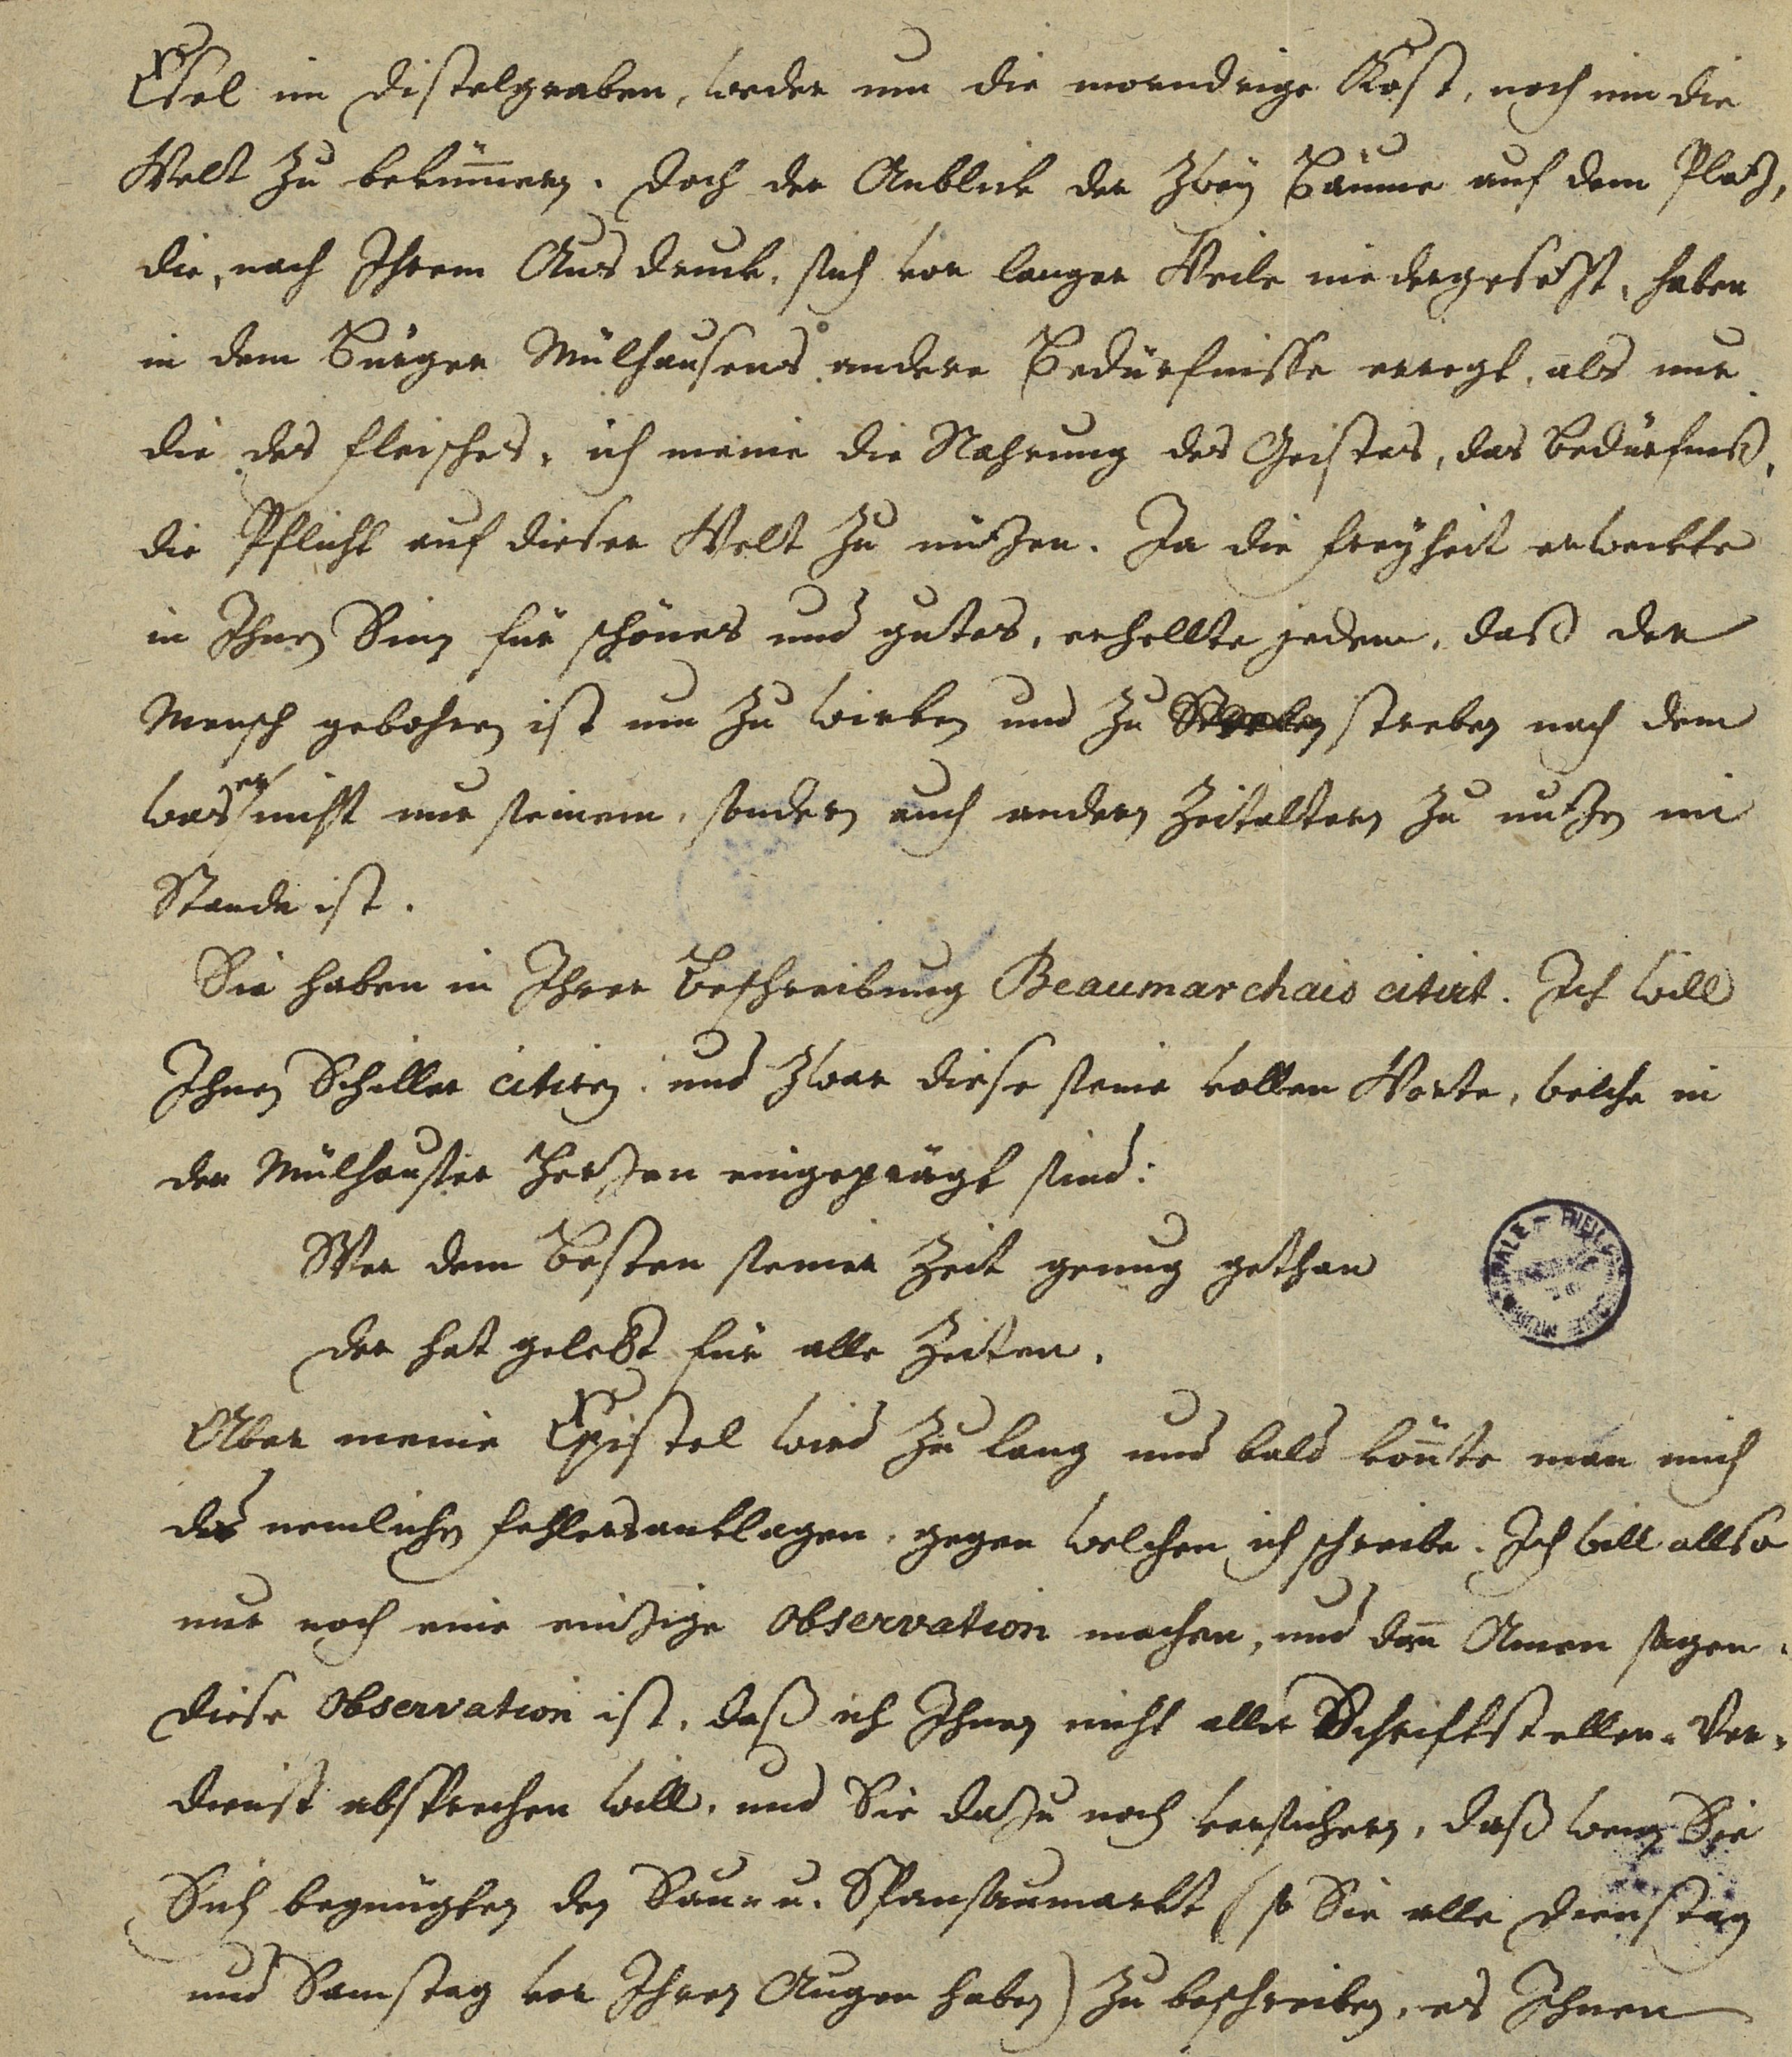 Esel im Distelgraben, weder um die morndrige Kost, noch um die
Welt zu bekümmern. Doch der Anblick der zwey Bäume auf dem Platz,
die, nach Ihrem Ausdruck, sich vor langer Weile niedergesetzt, haben
in dem Bürger Mülhausens andere Bedürfnisse erregt, als nur
die des Fleisches, ich meine die Nahrung des Geistes, das Bedürfniß,
die Pflicht auf dieser Welt zu nützen. Ja die Freyheit erweckte
in Ihnen Sinn für schönes und gutes, erhellte jedem, daß der
Mensch gebohren ist um zu wirken und zu streben nach dem
was er nicht nur seinem, sondern auch andern Zeitaltern zu nutzen im
Stande ist.
Sie haben in Ihrer Beschreibung Beaumarchais citirt. Ich will
Ihnen Schiller citiren, und zwar diese seine vollen Worte, welche in
der Mülhauser Herzen eingeprägt sind:
Wer dem Besten seiner Zeit genug gethan
der hat gelebt für alle Zeiten.
Aber meine Epistel wird zu lang und bald könnte man mich
des nemlichen Fehlers anklagen, gegen welchen ich schreibe. Ich will allso
nur noch eine einzige Observation machen, und dann Amen sagen.
Diese Observation ist, daß ich Ihnen nicht aller Schriftsteller-Ver-
dienst absprechen will, und Sie dazu noch versichern, daß wenn Sie
Sich begnügten den Sau- u. Spansaumarkt (so Sie alle Dienstag
und Samstag vor Ihren Augen haben) zu beschreiben, es Ihnen